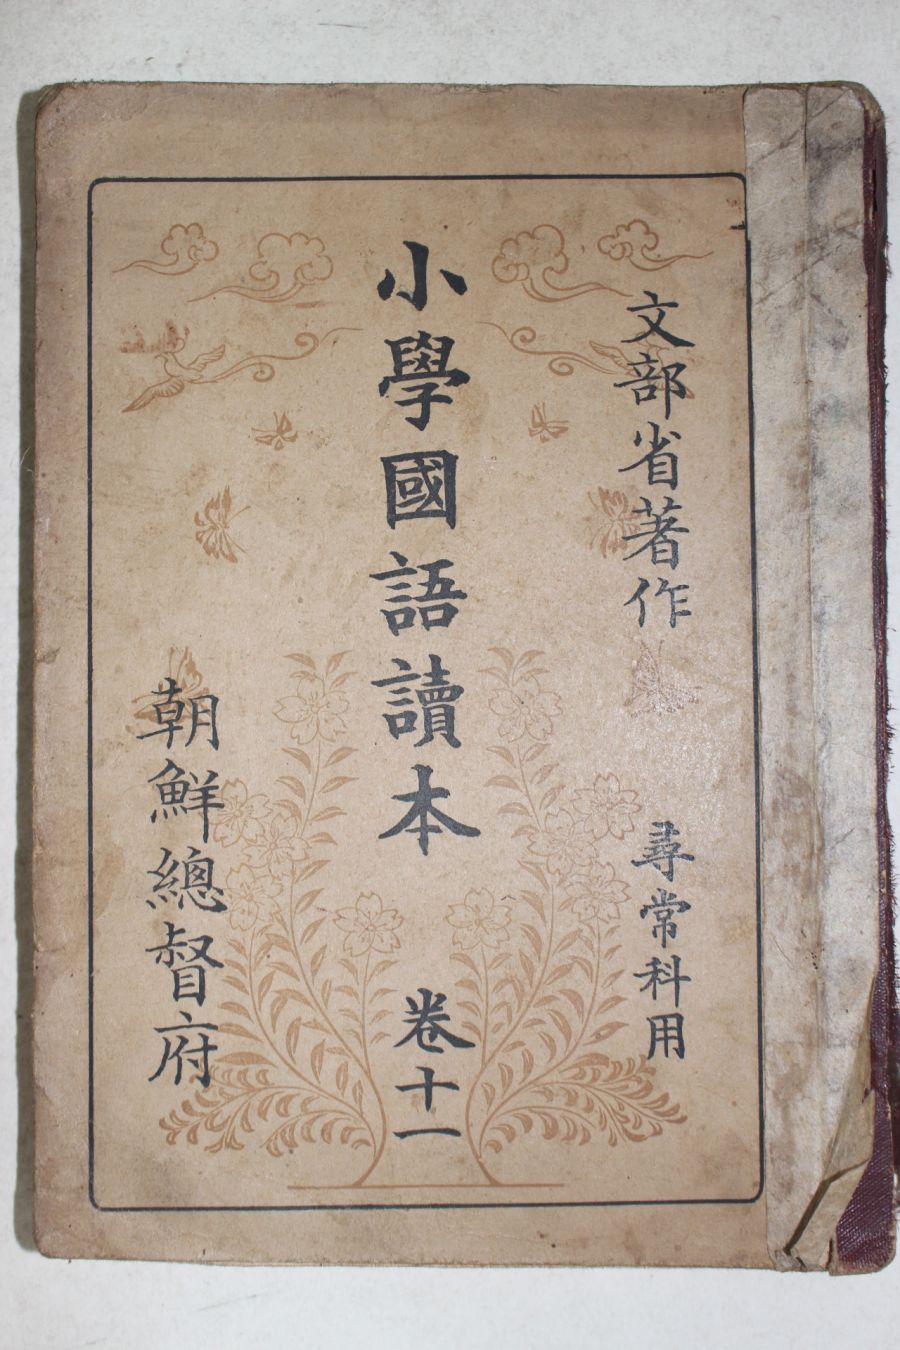 文部省著作 尋常科用
小學國語讀本 卷十一
朝鮮總督府